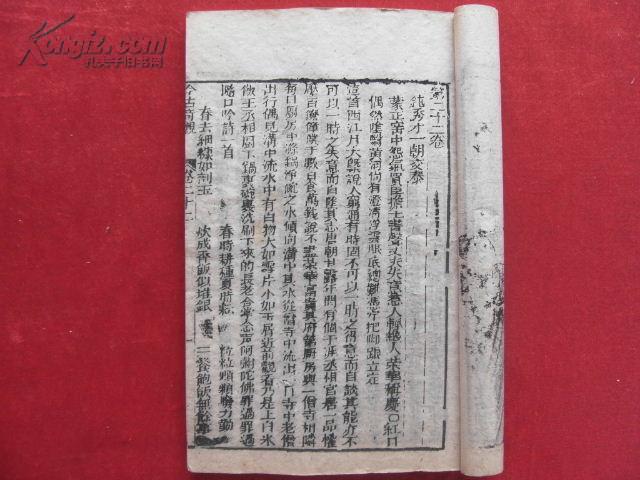 第二十二卷
鈍秀才一朝交泰
蒙正窑中怨氣買臣擔上書聲丈夫失意惹人輕 人榮華稱慶〇紅日
偶然陰翳黃河尚有澄清浮雲眼底總難憑牢把脚跟立定
這首西江月大槩說人窮通有時固不可以一時之得意而自誇其能亦不
可以一時之失意而自墜其志唐朝甘露年間有個王涯丞相官居一品權
壓百僚僮僕千數日食萬錢說不盡榮華富貴其府第厨房與一僧寺相隣
每日厨房中滌鍋淨碗之水傾向溝中其水從僧寺中流出一日寺中老僧
出行偶見溝中流水中有白物大如雪片小如玉屑近前觀看乃是上白米
飯王丞相厨下鍋裏碗裏洗刷下來的長老合掌念声阿彌陀佛罪過罪過
隨口吟詩一首
春時耕種夏時耘 粒粒顆顆費力勤
舂去細糠如剖玉 炊成香飯似堆銀 三餐飽飯無餘事
今古奇觀 卷二十二
孔夫子旧书网